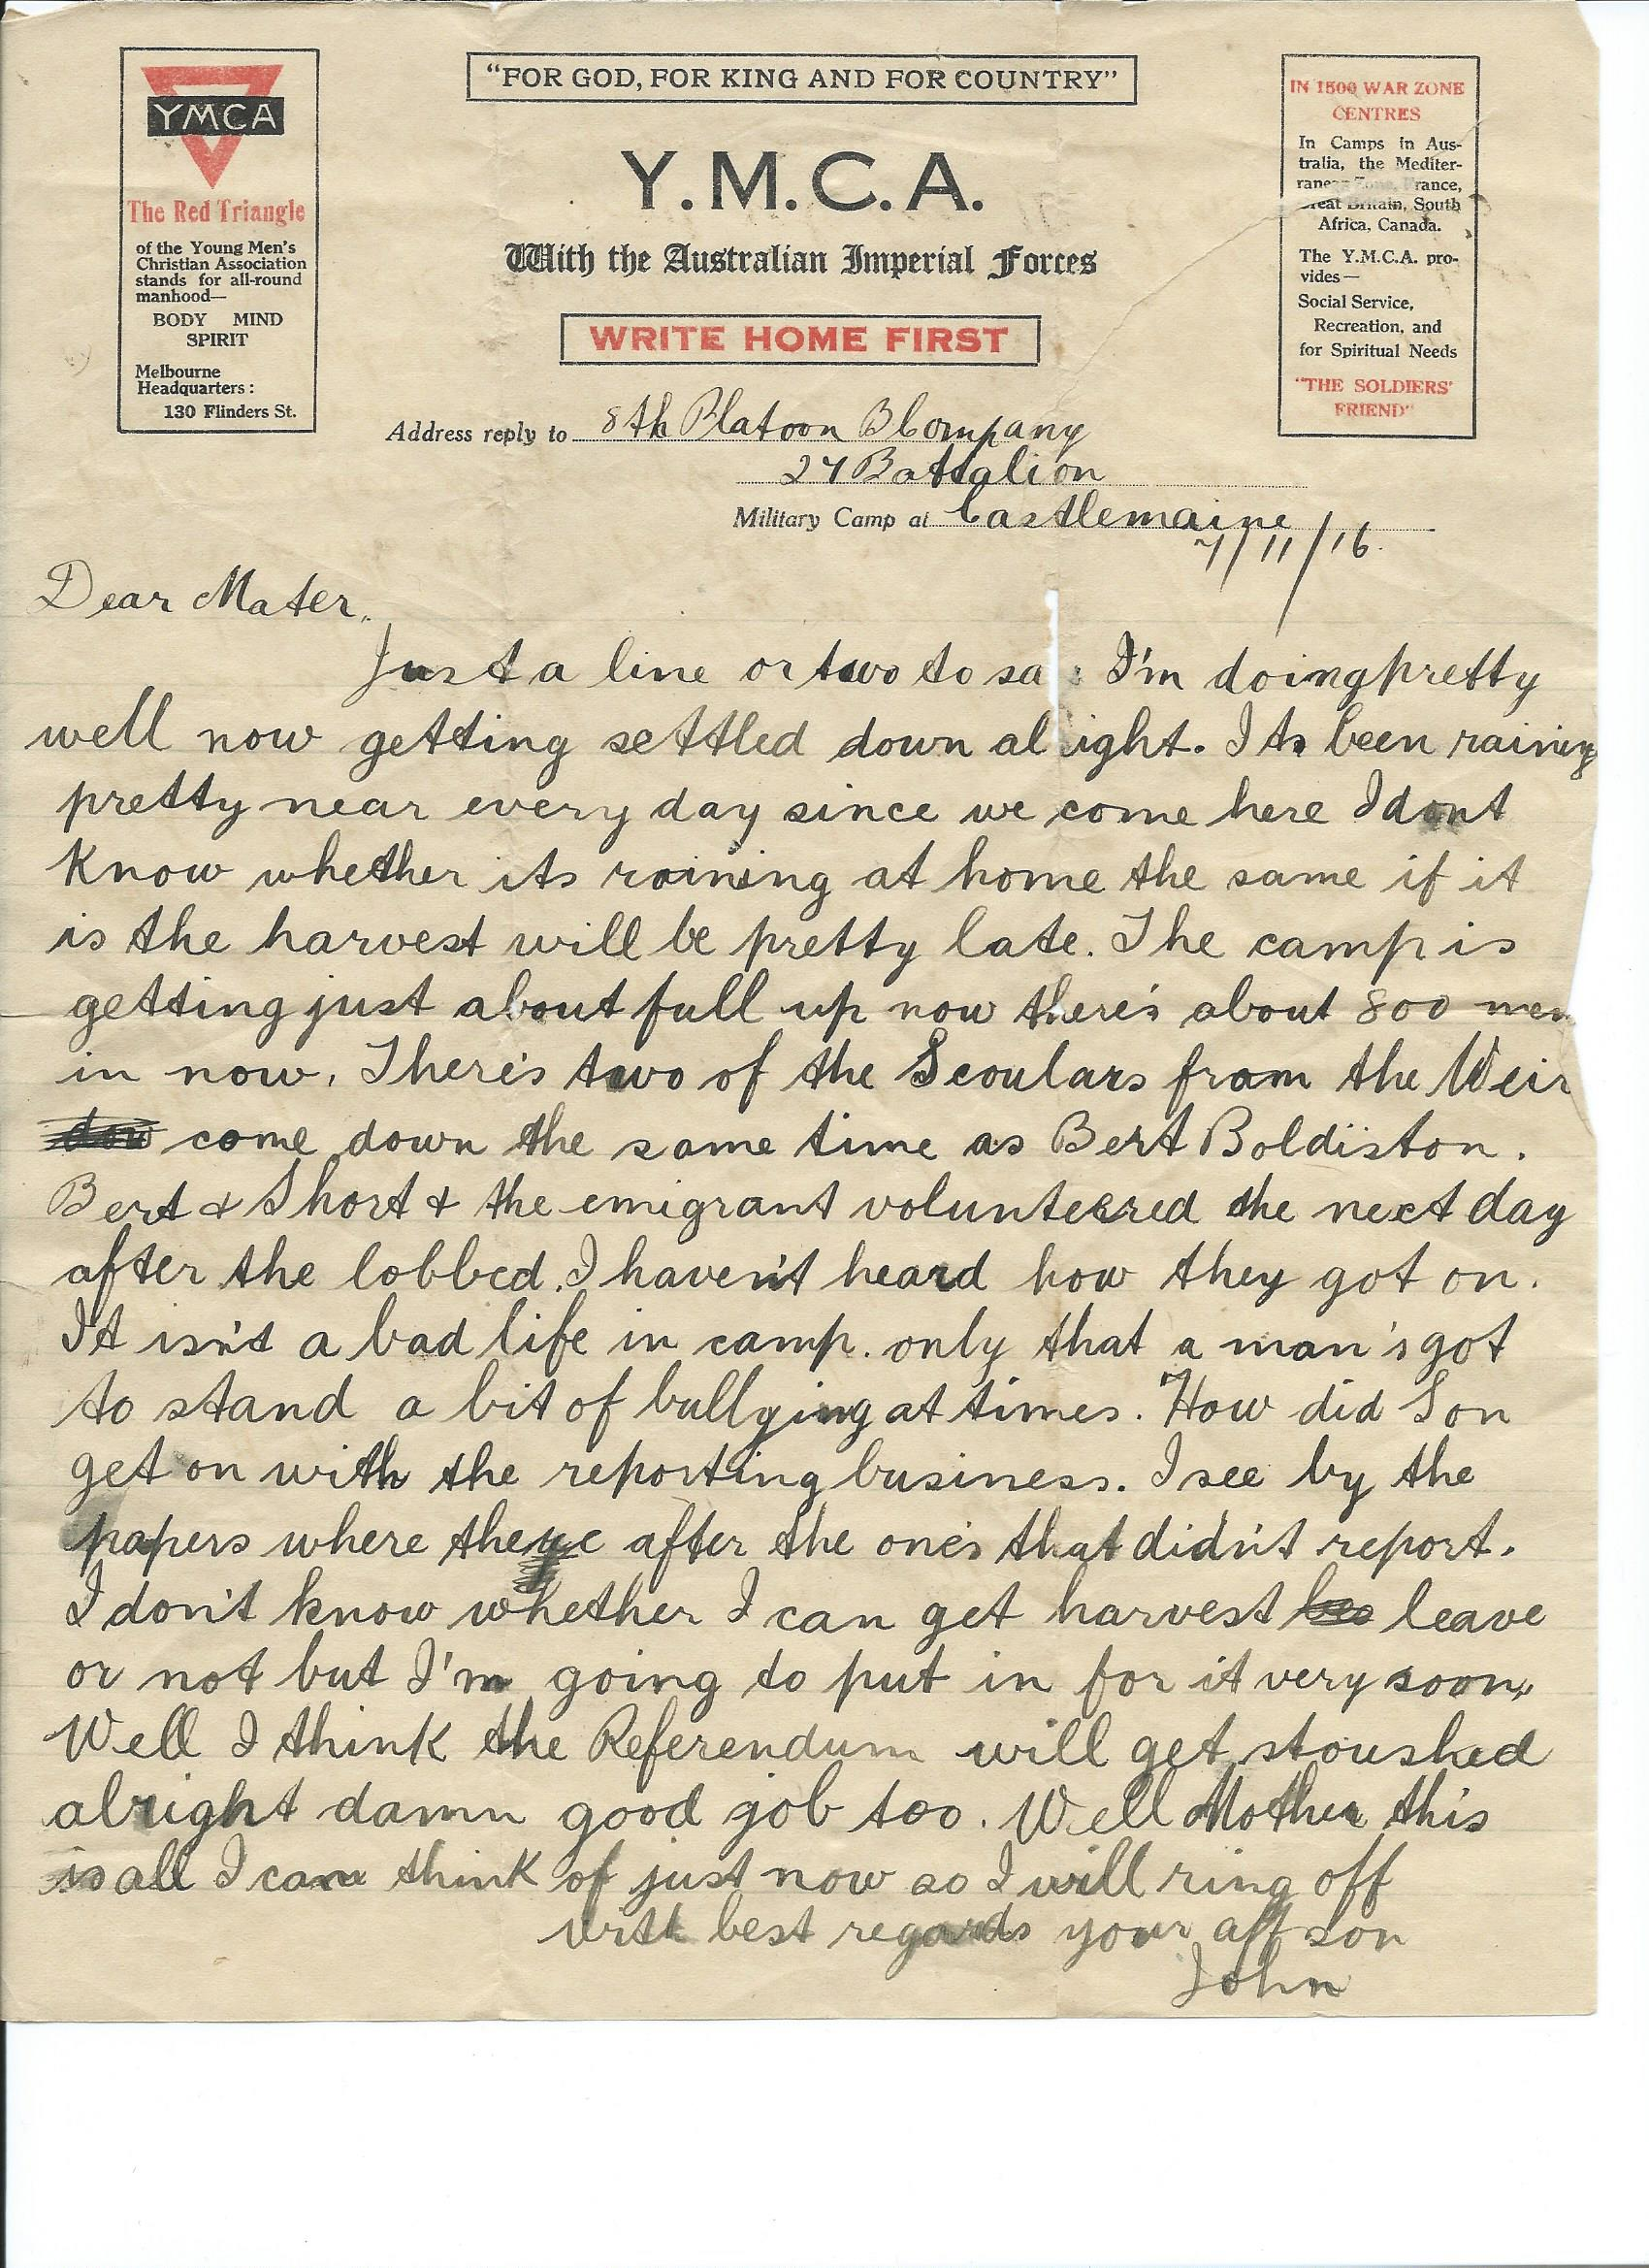 "FOR GOD, FOR KING AND FOR COUNTRY"
YMCA
The Red Triangle
of the Young Men's
Christian Association
stands for all-round
manhood—
BODY MIND
SPIRIT
Melbourne
Headquarters:
130 Flinders St.
Y.M.C.A.
With the Australian Imperial Forces
WRITE HOME FIRST
IN 1500 WAR ZONE
CENTRES
In Camps in Aus-
tralia, the Mediter-
Zone, France,
Great Britain, South
Africa, Canada.
The Y.M.C.A. pro-
vides—
Social Service,
Recreation, and
for Spiritual Needs
"THE SOLDIERS'
FRIEND"
Address reply to 8th Platoon B Company
27 Battalion
Military Camp at Castlemaine
7/11/16.
Dear Mater,
Just a line or two to sa I'm doing pretty
well now getting settled down al ight. Its been raining
pretty near every day since we come here I dont
know whether its raining at home the same if it
is the harvest will be pretty late. The camp is
getting just about full up now there's about 800 men
in now. There's two of the Scoulars from the Weir
come down the same time as Bert Boldiston.
Bert & Short & the emigrant volunteered the next day
after the lobbed. I haven't heard how they got on.
It isn't a bad life in camp. only that a man's got
to stand a bit of bullying at times. How did Son
get on with the reporting business. I see by the
papers where after the one's that didn't report.
I don't know whether I can get harvest leave
or not but I'm going to put in for it very soon.
Well I think the Referendum will get stoushed
alright damn good job too. Well Mother this
is all I can think of just now so I will ring off
with best regards your aff son
John